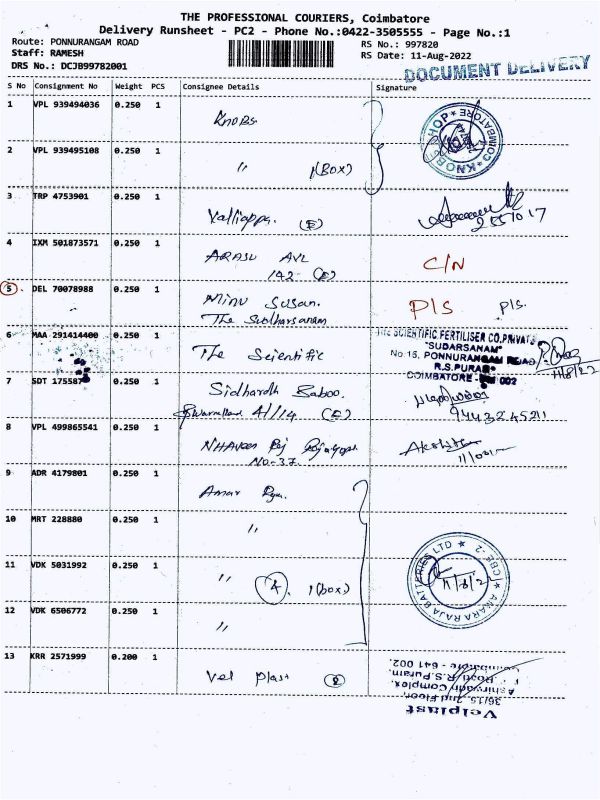 THE PROFESSIONAL COURIERS, Coimbatore
Delivery Runsheet - PC2 - Phone No.:0422-3505555 - Page No.:1
Route: PONNURANGAM ROAD
RS No.: 997820
Staff: RAMESH
RS Date: 11-Aug-2022
DRS No.: DCJB99782001
DOCUMENT DELIVERY
S No Consignment No Weight PCS Consignee Details Signature
1 VPL 939494036 0.250 1 Knobs
KNOBE SHOP * COIMBATORE *
2 VPL 939495108 0.250 1 " 1(Box)
3 TRP 4753901 0.250 1 Valliappa. (E)
4 IXM 501873571 0.250 1 ARASU AVL C/N
142 - (E)
5 DEL 70078988 0.250 1 Minu Susan. P/S P/S.
The Sudharsanam
6 MAA 291414400 0.250 1 The Scientific
THE SCIENTIFIC FERTILISER CO.PRIVATE
"SUDARSANAM"
No.16, PONNURANGAM ROAD
R.S.PURAM
COIMBATORE - 002
11/8/22
7 SDT 175587 0.250 1 Sidhardh Saboo.
41/14 (E) 9443245211
8 VPL 499865541 0.250 1
No-37.
9 ADR 4179801 0.250 1 Amar
10 MRT 228880 0.250 1 "
11 VDK 5031992 0.250 1 " 4. 1(box)
AMARA RAJA BATTERIES LTD * CBE-2 *
11/8/2
12 VDK 6506772 0.250 1 "
13 KRR 2571999 0.200 1 Vel Plast
Velplast
36/15, 2nd Floor,
Ashirvadh Complex,
Road, R.S.Puram,
Coimbatore - 641 002.